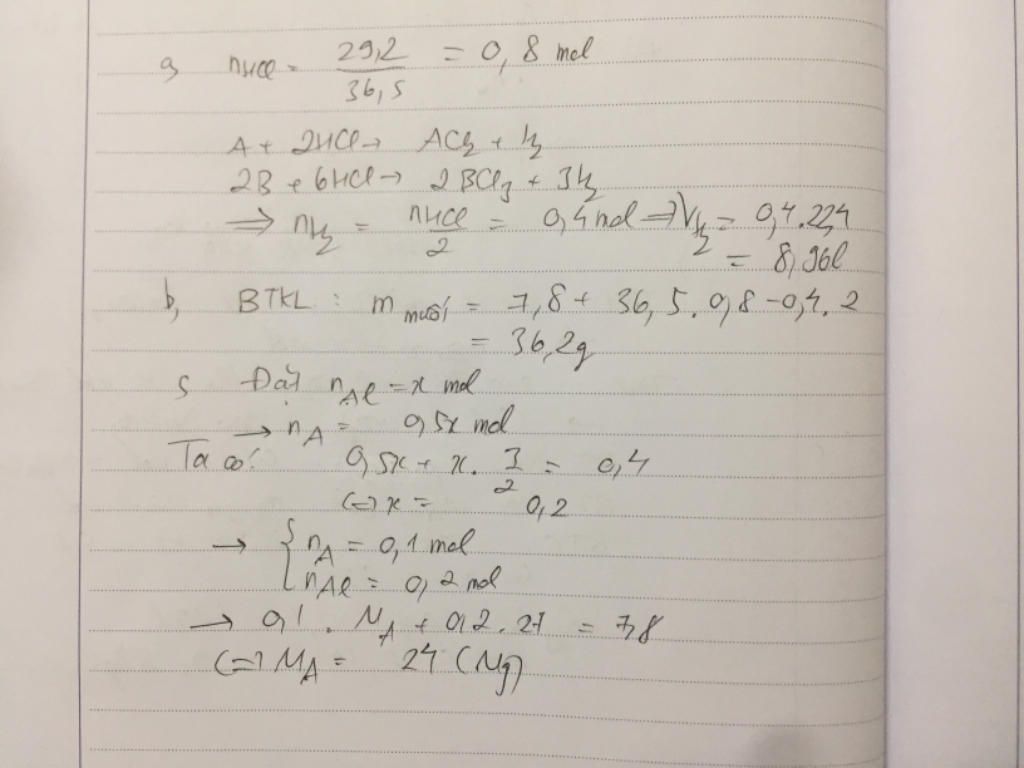 a, nHCl = 29,2/36,5 = 0,8 mol
A + 2HCl → ACl2 + H2
2B + 6HCl → 2BCl3 + 3H2
⇒ nH2 = nHCl/2 = 0,4 mol ⇒ VH2 = 0,4.22,4
= 8,96l
b, BTKL : m muối = 7,8 + 36,5.0,8 - 0,4.2
= 36,2g
c, Đặt nAl = x mol
→ nA = 0,5x mol
Ta có: 0,5x + x.3/2 = 0,4
(=) x = 0,2
→ { nA = 0,1 mol
nAl = 0,2 mol
→ 0,1 . MA + 0,2.27 = 7,8
(=) MA = 24 (Mg)